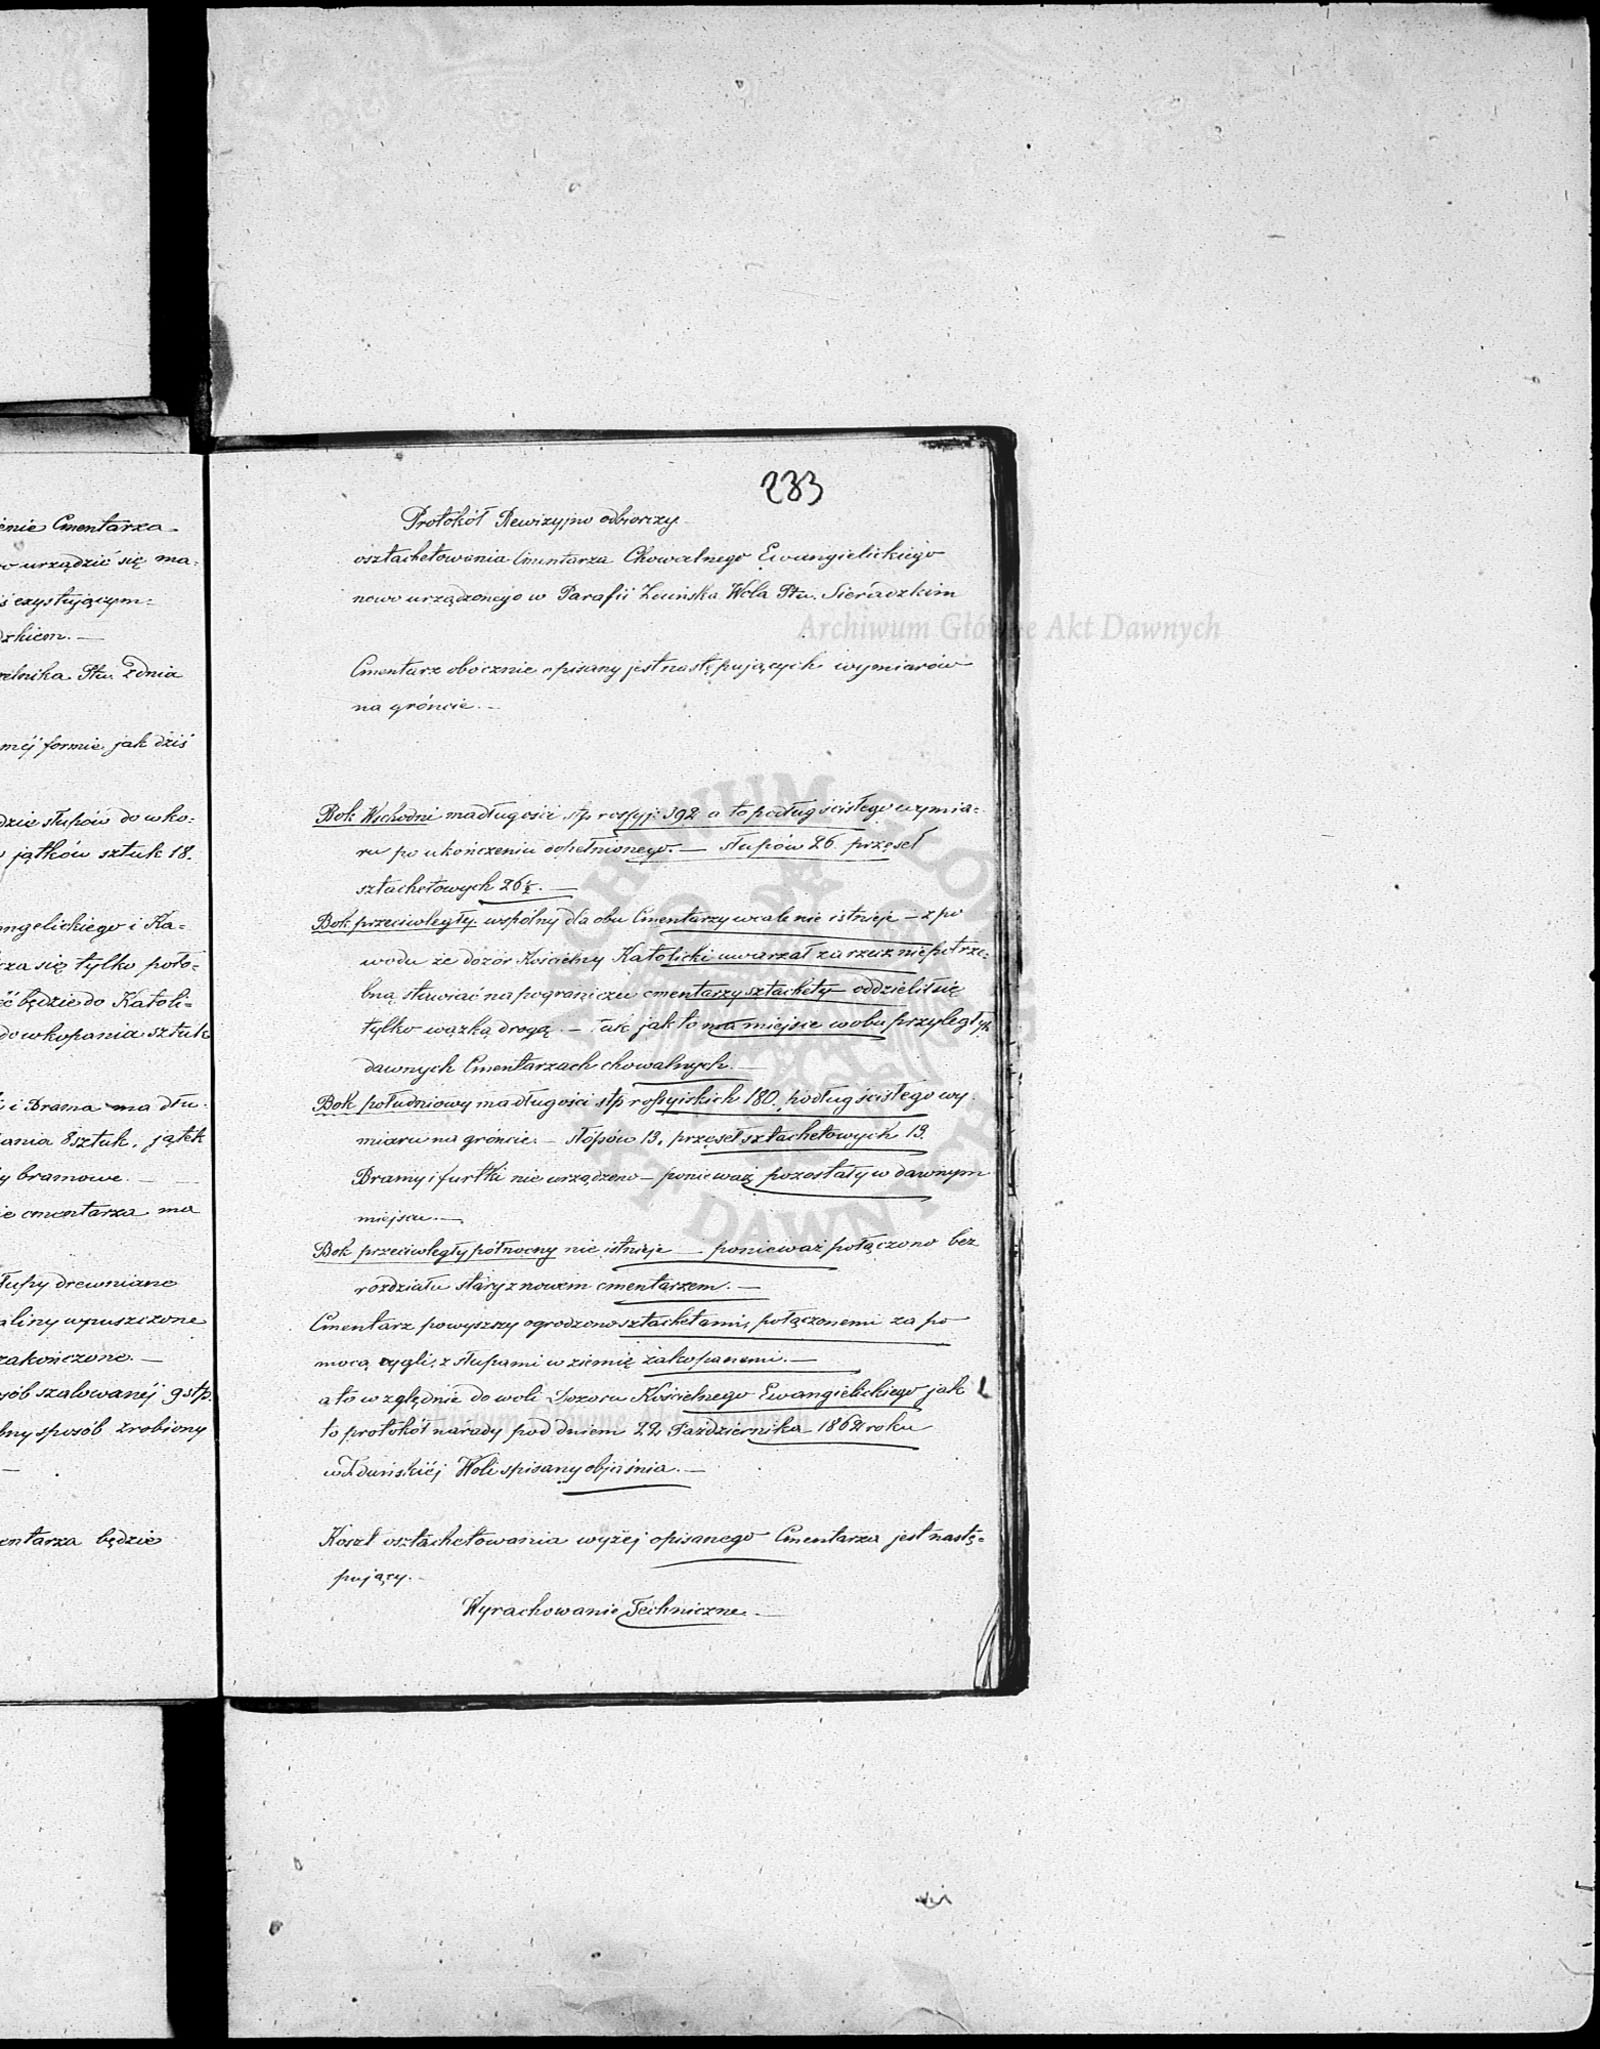 enie Cmentarza
o urządzić się ma-
exystującym-
dzkiem. —
zelnika Ptu. Zdnia
mej formie jak dziś
dzie słupów do wko-
jątków sztuk 18.
angelickiego i Ka-
cza się tylko poło-
ć będzie do Katoli-
do wkopania sztuk
i Brama ma dłu-
ania 8 sztuk, jątek
y bramowe. —
ie cmentarza ma
łupy drewniane
aliny wpuszczone
zakończone. —
sób szalowanej 9 stp.
bny sposób zrobiony
—
entarza będzie
233
Protokół Rewizyjno odbiorczy
osztachetowania Cmentarza Chowalnego Ewangielickiego
nowo urządzonego w Parafii Zduńska Wola Ptu. Sieradzkim
Archiwum Główne Akt Dawnych
Cmentarz obocznie opisany jest następujących wymiarów
na gróncie. —
Bok Wschodni ma długości stp. rossyj: 392 a to podług ścisłego wymia-
ru po ukończeniu dopełnionego. — słupów 26 przęseł
sztachetowych 26½. —
Bok przeciwległy wspólny dla obu Cmentarzy wcale nie istnieje — z po
wodu że dozór Kościelny Katolicki uwarzał za rzecz niepotrze-
bną stawiać na pograniczu cmentarzy sztachety — oddzielił się
tylko wązką drogą. — tak jak to ma miejsce w obu przyległych
dawnych Cmentarzach chowalnych. —
Bok południowy ma długości stp rossyiskich 180. podług ścisłego wy-
miaru na gróncie. — słópów 13, przęseł sztachetowych 13.
Bramy i furtki nie urządzono — ponieważ pozostały w dawnym
miejscu. —
Bok przeciwległy północny nie istnieje — ponieważ połączono bez
rozdziału stary z nowem cmentarzem. —
Cmentarz powyższy ogrodzono sztachetami, połączonemi za po
mocą rygli, z słupami w ziemię zakopanemi. —
a to względnie do woli Dozoru Kościelnego Ewangielickiego jak
to protokół narady pod dniem 22 Października 1862 roku
w Zduńskiéj Woli spisany objaśnia. —
Koszt osztachetowania wyżéj opisanego Cmentarza jest nastę-
pujący. —
Wyrachowanie Techniczne. —
ARCHIWUM GŁÓWNE AKT DAWNYCH
Archiwum Główne Akt Dawnych